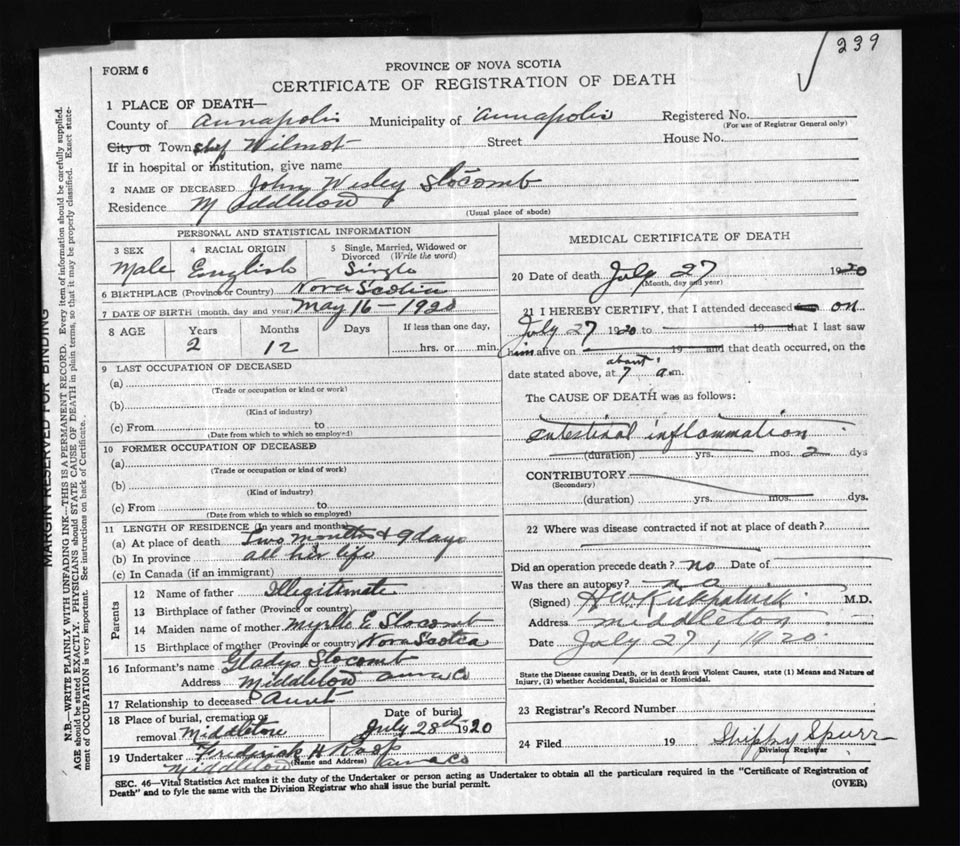 239
FORM 6
PROVINCE OF NOVA SCOTIA
CERTIFICATE OF REGISTRATION OF DEATH
1 PLACE OF DEATH—
County of Annapolis Municipality of Annapolis Registered No.
(For use of Registrar General only)
City or Township Wilmot Street House No.
If in hospital or institution, give name
2 NAME OF DECEASED John Wesley Slocomb
Residence Middleton
(Usual place of abode)
PERSONAL AND STATISTICAL INFORMATION
3 SEX 4 RACIAL ORIGIN 5 Single, Married, Widowed or Divorced (Write the word)
Male English Single
6 BIRTHPLACE (Province or Country) Nova Scotia
7 DATE OF BIRTH (month, day and year) May 16 - 1920
8 AGE Years Months Days If less than one day,
2 12 hrs. or min.
9 LAST OCCUPATION OF DECEASED
(a)
(Trade or occupation or kind or work)
(b)
(Kind of industry)
(c) From to
(Date from which to which so employed)
10 FORMER OCCUPATION OF DECEASED
(a)
(Trade or occupation or kind of work)
(b)
(Kind of industry)
(c) From to
(Date from which to which so employed)
11 LENGTH OF RESIDENCE (In years and months)
(a) At place of death Two months & 9 days
(b) In province all her life
(c) In Canada (if an immigrant)
Parents
12 Name of father Illegitimate
13 Birthplace of father (Province or country)
14 Maiden name of mother Myrtle E Slocomb
15 Birthplace of mother (Province or country) Nova Scotia
16 Informant's name Gladys Slocomb
Address Middleton Anna Co
17 Relationship to deceased Aunt
18 Place of burial, cremation or removal Middleton Date of burial July 28th 1920
19 Undertaker Frederick H Roop
(Name and Address)
Middleton Anna Co
MEDICAL CERTIFICATE OF DEATH
20 Date of death July 27 1920
(Month, day and year)
21 I HEREBY CERTIFY, that I attended deceased on
July 27 1920 to 19 that I last saw
him alive on 19 and that death occurred, on the
date stated above, at about 7 a.m.
The CAUSE OF DEATH was as follows:
Intestinal inflammation
(duration) yrs. mos. 2 dys
CONTRIBUTORY
(Secondary)
(duration) yrs. mos. dys.
22 Where was disease contracted if not at place of death?
Did an operation precede death? no Date of
Was there an autopsy? no
(Signed) H W Kirkpatrick M.D.
Address Middleton
Date July 27, 1920.
State the Disease causing Death, or in death from Violent Causes, state (1) Means and Nature of
Injury, (2) whether Accidental, Suicidal or Homicidal.
23 Registrar's Record Number
24 Filed 19 Shippy Spurr
Division Registrar
SEC. 46—Vital Statistics Act makes it the duty of the Undertaker or person acting as Undertaker to obtain all the particulars required in the "Certificate of Registration of
Death" and to fyle the same with the Division Registrar who shall issue the burial permit.
(OVER)
MARGIN RESERVED FOR BINDING
N.B.—WRITE PLAINLY WITH UNFADING INK—THIS IS A PERMANENT RECORD. Every item of information should be carefully supplied.
AGE should be stated EXACTLY. PHYSICIANS should STATE CAUSE OF DEATH in plain terms, so that it may be properly classified. Exact state-
ment of OCCUPATION is very important. See instructions on back of Certificate.